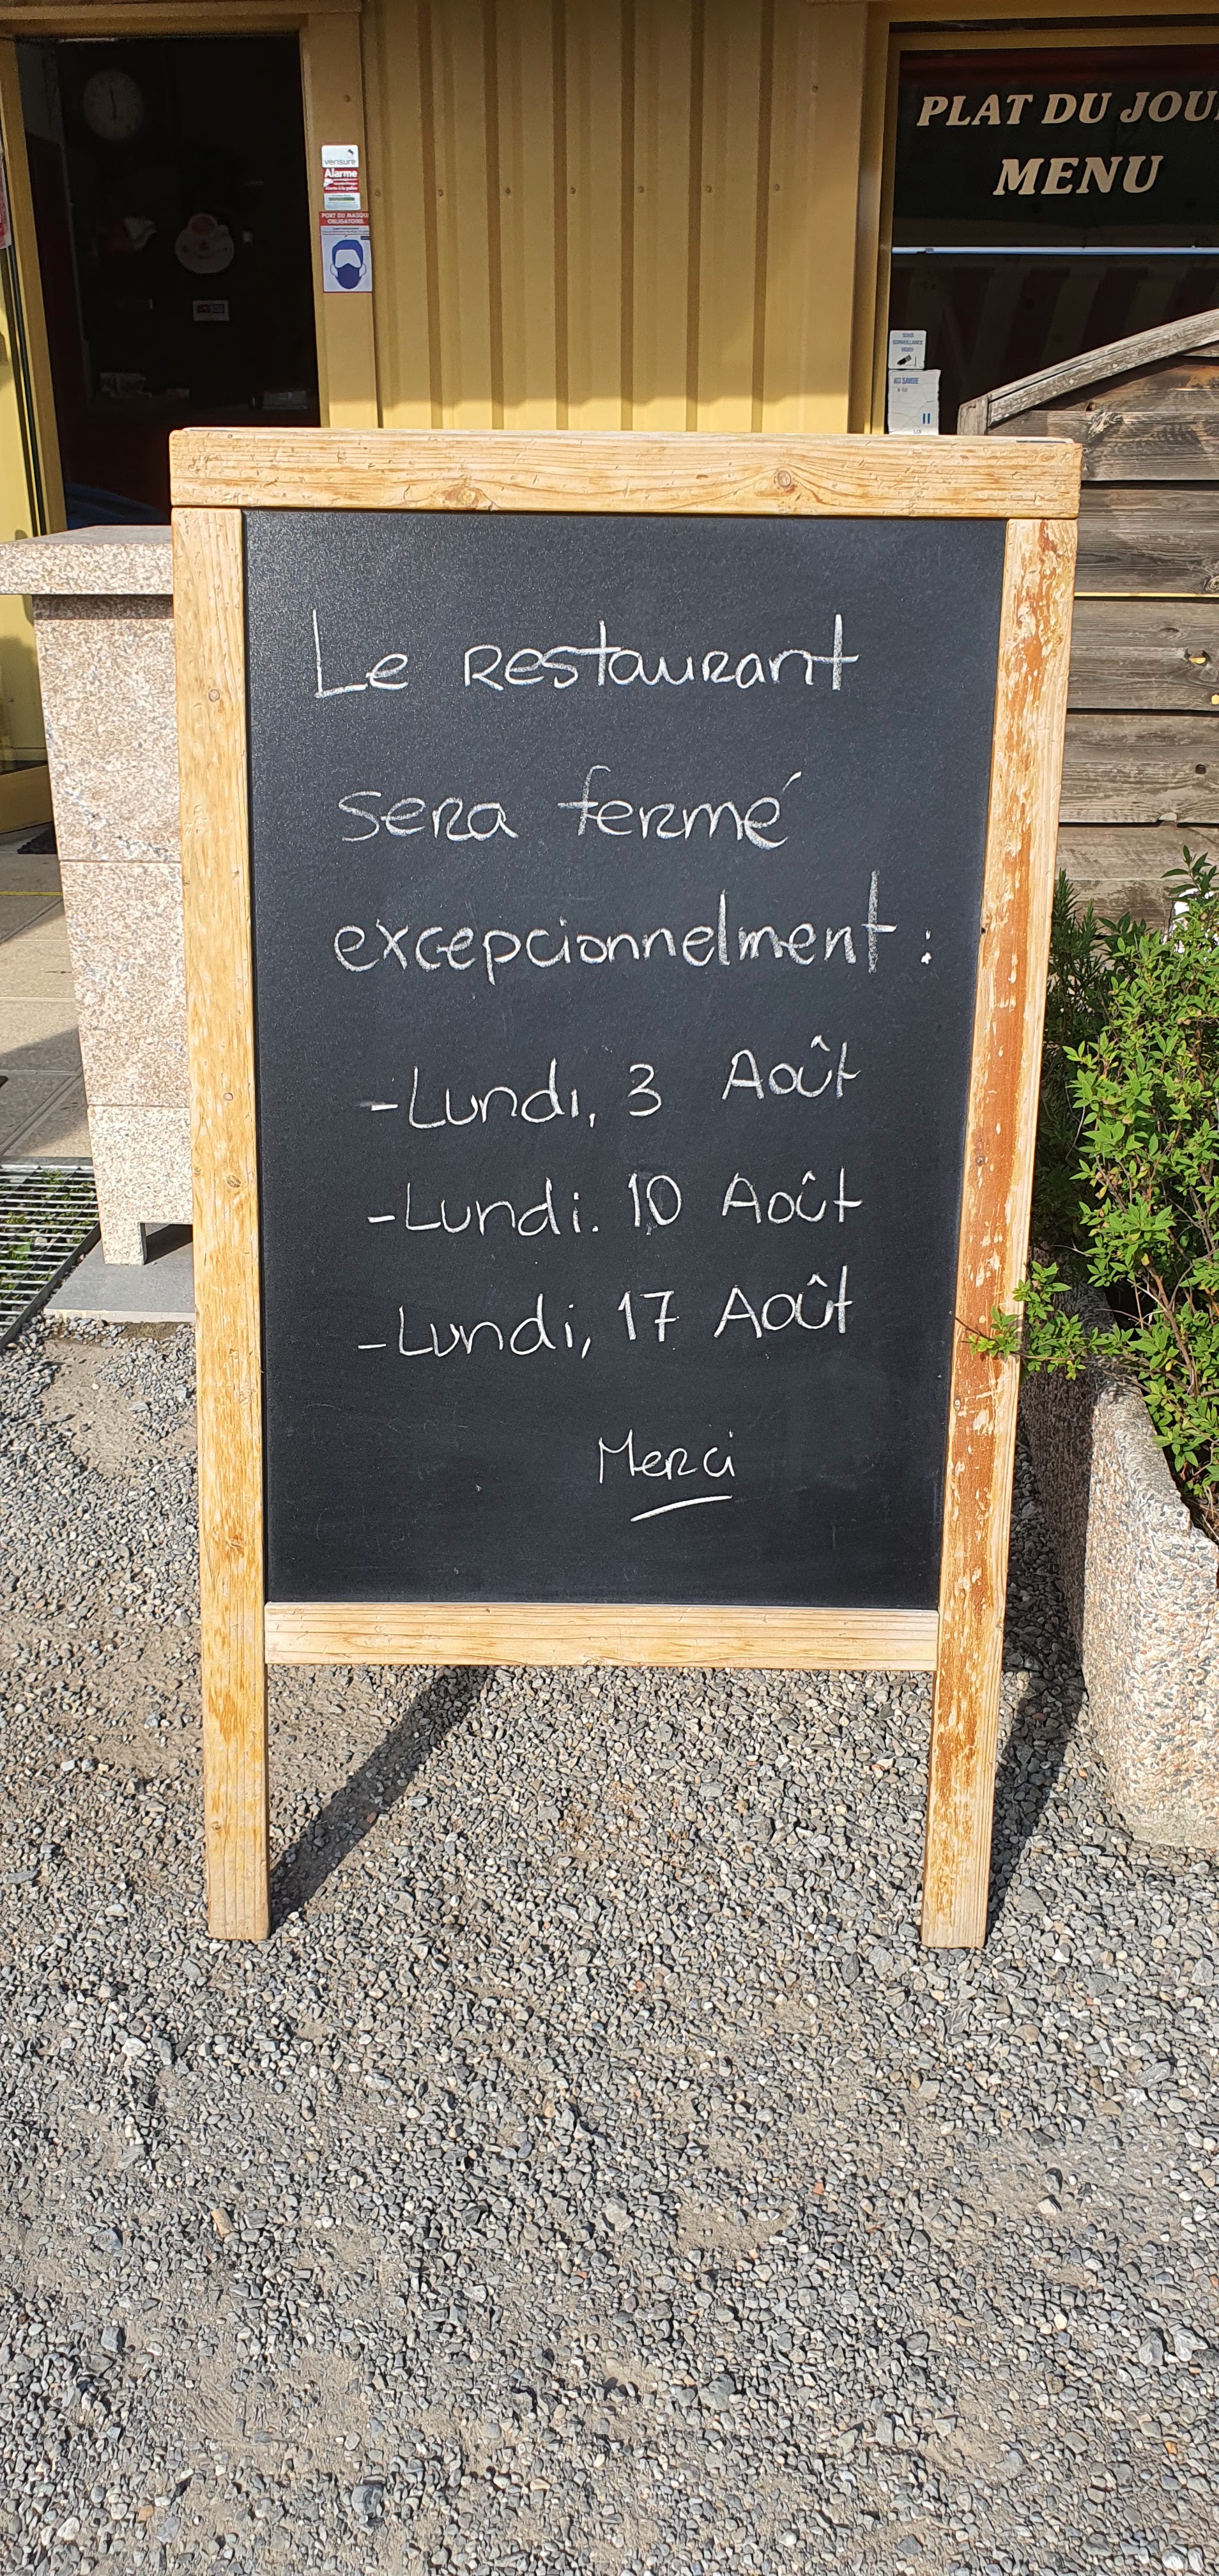 PLAT DU JOU
MENU
verisure
Alarme
PORT DU MASQUE
OBLIGATOIRE
SOUS
SURVEILLANCE
Le restaurant
sera fermé
excepcionnelment :
-Lundi, 3 Août
-Lundi. 10 Août
-Lundi, 17 Août
Merci